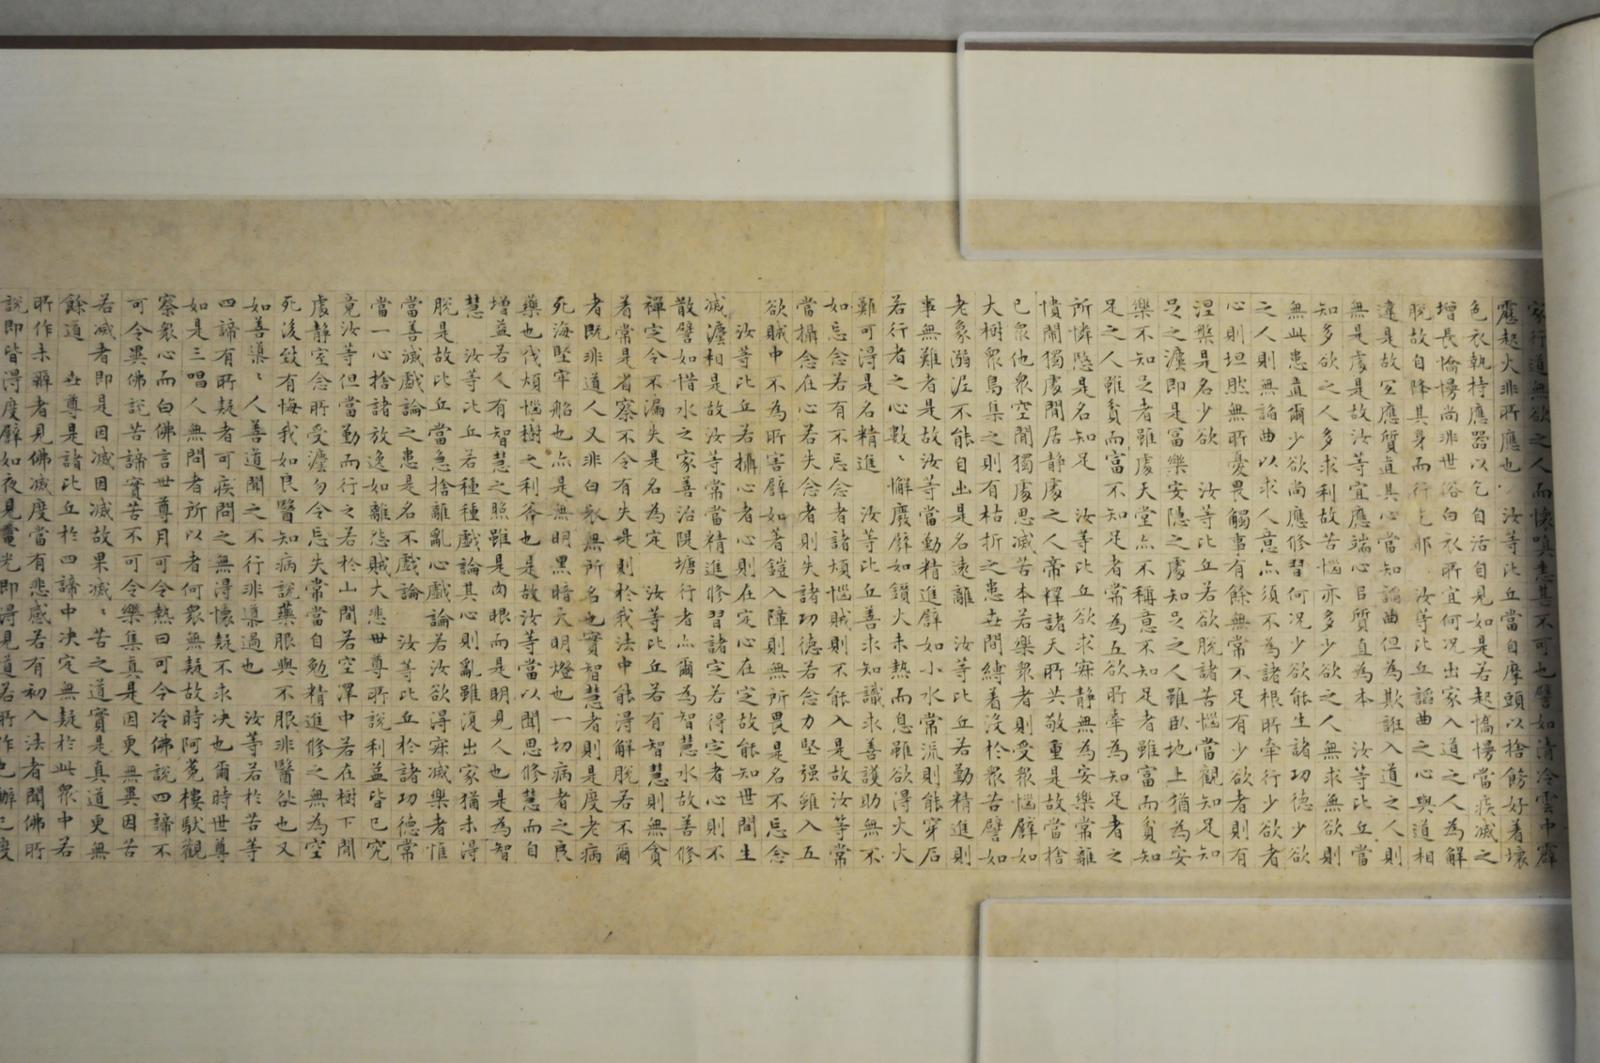 家行道無欲之人而懷嗔恚甚不可也譬如清冷雲中霹
靂起火非所應也 汝等比丘當自摩頭以捨飾好著壞
色衣執持應器以乞自活自見如是若起憍慢當疾滅之
增長憍慢尚非世俗白衣所宜何況出家入道之人為解
脫故自降其身而行乞耶 汝等比丘諂曲之心與道相
違是故宜應質直其心當知諂曲但為欺誑入道之人則
無是處是故汝等宜應端心以質直為本 汝等比丘當
知多欲之人多求利故苦惱亦多少欲之人無求無欲則
無此患直爾少欲尚應修習何況少欲能生諸功德少欲
之人則無諂曲以求人意亦須不為諸根所牽行少欲者
心則坦然無所憂畏觸事有餘無常不足有少欲者則有
涅槃是名少欲 汝等比丘若欲脫諸苦惱當觀知足知
足之法即是富樂安隱之處知足之人雖臥地上猶為安
樂不知足者雖處天堂亦不稱意不知足者雖富而貧知
足之人雖貧而富不知足者常為五欲所牽為知足者之
所憐愍是名知足 汝等比丘欲求寂靜無為安樂常離
憒閙獨處閒居靜處之人帝釋諸天所共敬重是故當捨
已眾他眾空閒獨處思滅苦本若樂眾者則受眾惱譬如
大樹眾鳥集之則有枯折之患世間縛著沒於眾苦譬如
老象溺泥不能自出是名遠離 汝等比丘若勤精進則
事無難者是故汝等當勤精進譬如小水常流則能穿石
若行者之心數〻懈廢譬如鑽火未熱而息雖欲得火火
難可得是名精進 汝等比丘善求知識求善護助無不
如忘念若有不忘念者諸煩惱賊則不能入是故汝等常
當攝念在心若失念者則失諸功德若念力堅强雖入五
欲賊中不為所害譬如著鎧入陣則無所畏是名不忘念
汝等比丘若攝心者心則在定心在定故能知世間生
滅法相是故汝等常當精進修習諸定若得定者心則不
散譬如惜水之家善治隄塘行者亦爾為智慧水故善修
禪定令不漏失是名為定 汝等比丘若有智慧則無貪
著常是省察不令有失是則於我法中能得解脫若不爾
者既非道人又非白衣無所名也實智慧者則是度老病
死海堅牢船也亦是無明黑暗大明燈也一切病者之良
藥也伐煩惱樹之利斧也是故汝等當以聞思修慧而自
增益若人有智慧之照雖是肉眼而是明見人也是為智
慧 汝等比丘若種種戲論其心則亂雖復出家猶未得
脫是故比丘當急捨離亂心戲論若汝欲得寂滅樂者惟
當善滅戲論之患是名不戲論 汝等比丘於諸功德常
當一心捨諸放逸如離怨賊大悲世尊所說利益皆已究
竟汝等但當勤而行之若於山間若空澤中若在樹下閒
處靜室念所受法勿令忘失常當自勉精進修之無為空
死後致有悔我如良醫知病說藥服與不服非醫咎也又
如善導〻人善道聞之不行非導過也 汝等若於苦等
四諦有所疑者可疾問之無得懷疑不求決也爾時世尊
如是三唱人無問者所以者何眾無疑故時阿㝹樓馱觀
察眾心而白佛言世尊月可令熱日可令冷佛說四諦不
可令異佛說苦諦實苦不可令樂集真是因更無異因苦
若滅者即是因滅因滅故果滅〻苦之道實是真道更無
餘道 世尊是諸比丘於四諦中決定無疑於此眾中若
所作未辦者見佛滅度當有悲感若有初入法者聞佛所
說即皆得度譬如夜見電光即得見道若所作已辦已度